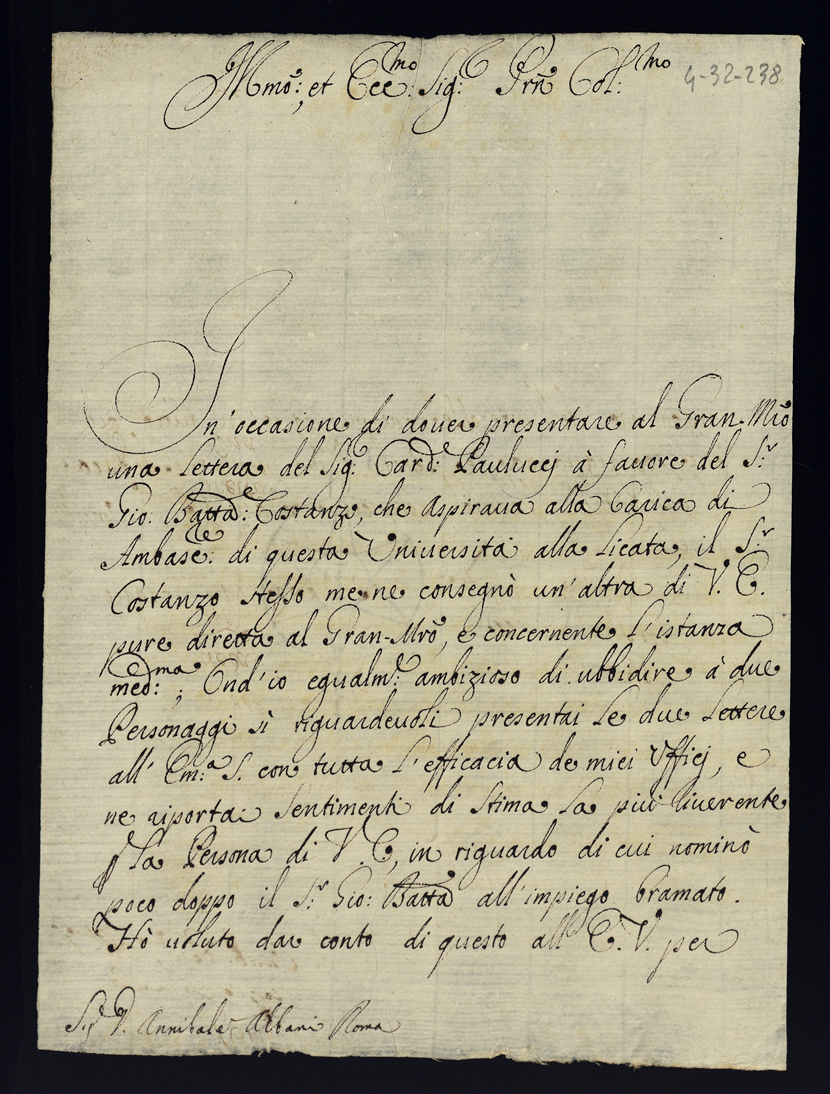 Illmo: et Ecc:mo Sig: Prñ Col:mo
4-32-238
In' occasione di dover presentare al Gran-Mrõ
una lettera del Sig: Card: Paulucci à favore del S:r
Gio: Batta: Costanzo, che aspirava alla Carica di
Ambasc:e di questa Università alla Licata, il S:r
Costanzo stesso me ne consegnò un' altra di V. E.
pure diretta al Gran-Mrõ, e concernente l'istanza
med:ma; Ond'io egualm:e ambizioso di ubbidire à due
Personaggi sì riguardevoli presentai le due lettere
all' Em:a S. con tutta l'efficacia de miei Ufficj, e
ne riportai sentimenti di stima la più riverente
ꝑ la Persona di V. E., in riguardo di cui nominò
poco doppo il S:r Gio: Batta all'impiego bramato.
Hò voluto dar conto di questo all' E. V. per
Sig:e D. Annibale Albani Roma